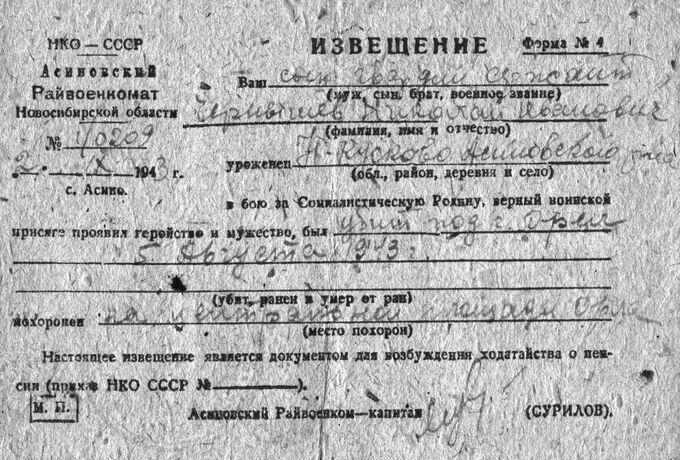 НКО — СССР
ИЗВЕЩЕНИЕ
Форма № 4
Асиновский
Райвоенкомат
Новосибирской области
Ваш сын гвардии сержант
(муж, сын, брат, военное звание)
Николай Иванович
(фамилия, имя и отчество)
№ 10209
2. X 1943 г.
с. Асино.
уроженец Н-Кусково Асиновского
(обл., район, деревня и село)
в бою за Социалистическую Родину, верный воинской
присяге проявил геройство и мужество, был убит под г. Орел
5 Августа 1943 г.
(убит, ранен и умер от ран)
похоронен на центральной площади Орла
(место похорон)
Настоящее извещение является документом для возбуждения ходатайства о пен-
сии (приказ НКО СССР № ).
М. П.
Асиновский Райвоенком—капитан
(СУРИЛОВ).